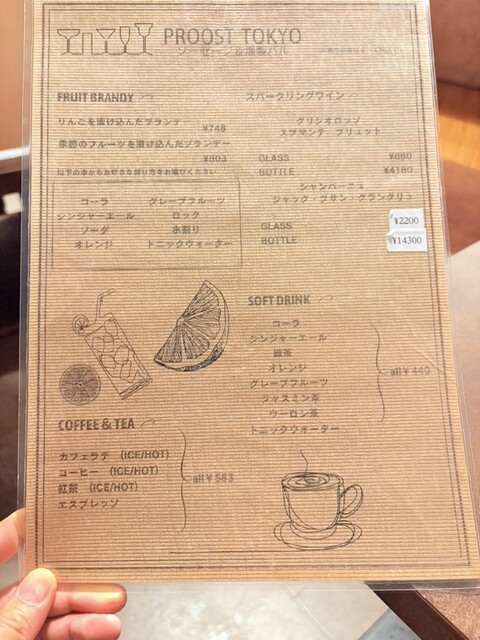 PROOST TOKYO
ソーセージ&燻製バル
FRUIT BRANDY
りんごを漬け込んだブランデー
¥748
季節のフルーツを漬け込んだブランデー
¥803
以下の中からお好きな割り方をお選びください
コーラ グレープフルーツ
ジンジャーエール ロック
ソーダ 水割り
オレンジ トニックウォーター
スパークリングワイン
グリジオロッソ
スプマンテ ブリュット
GLASS ¥880
BOTTLE ¥4180
シャンパーニュ
ジャック・ブサン・グランクリュ
GLASS ¥2200
BOTTLE ¥14300
SOFT DRINK
コーラ
ジンジャーエール
緑茶
オレンジ
グレープフルーツ
ジャスミン茶
ウーロン茶
トニックウォーター
all ¥440
COFFEE & TEA
カフェラテ (ICE/HOT)
コーヒー (ICE/HOT)
紅茶 (ICE/HOT)
エスプレッソ
all ¥583